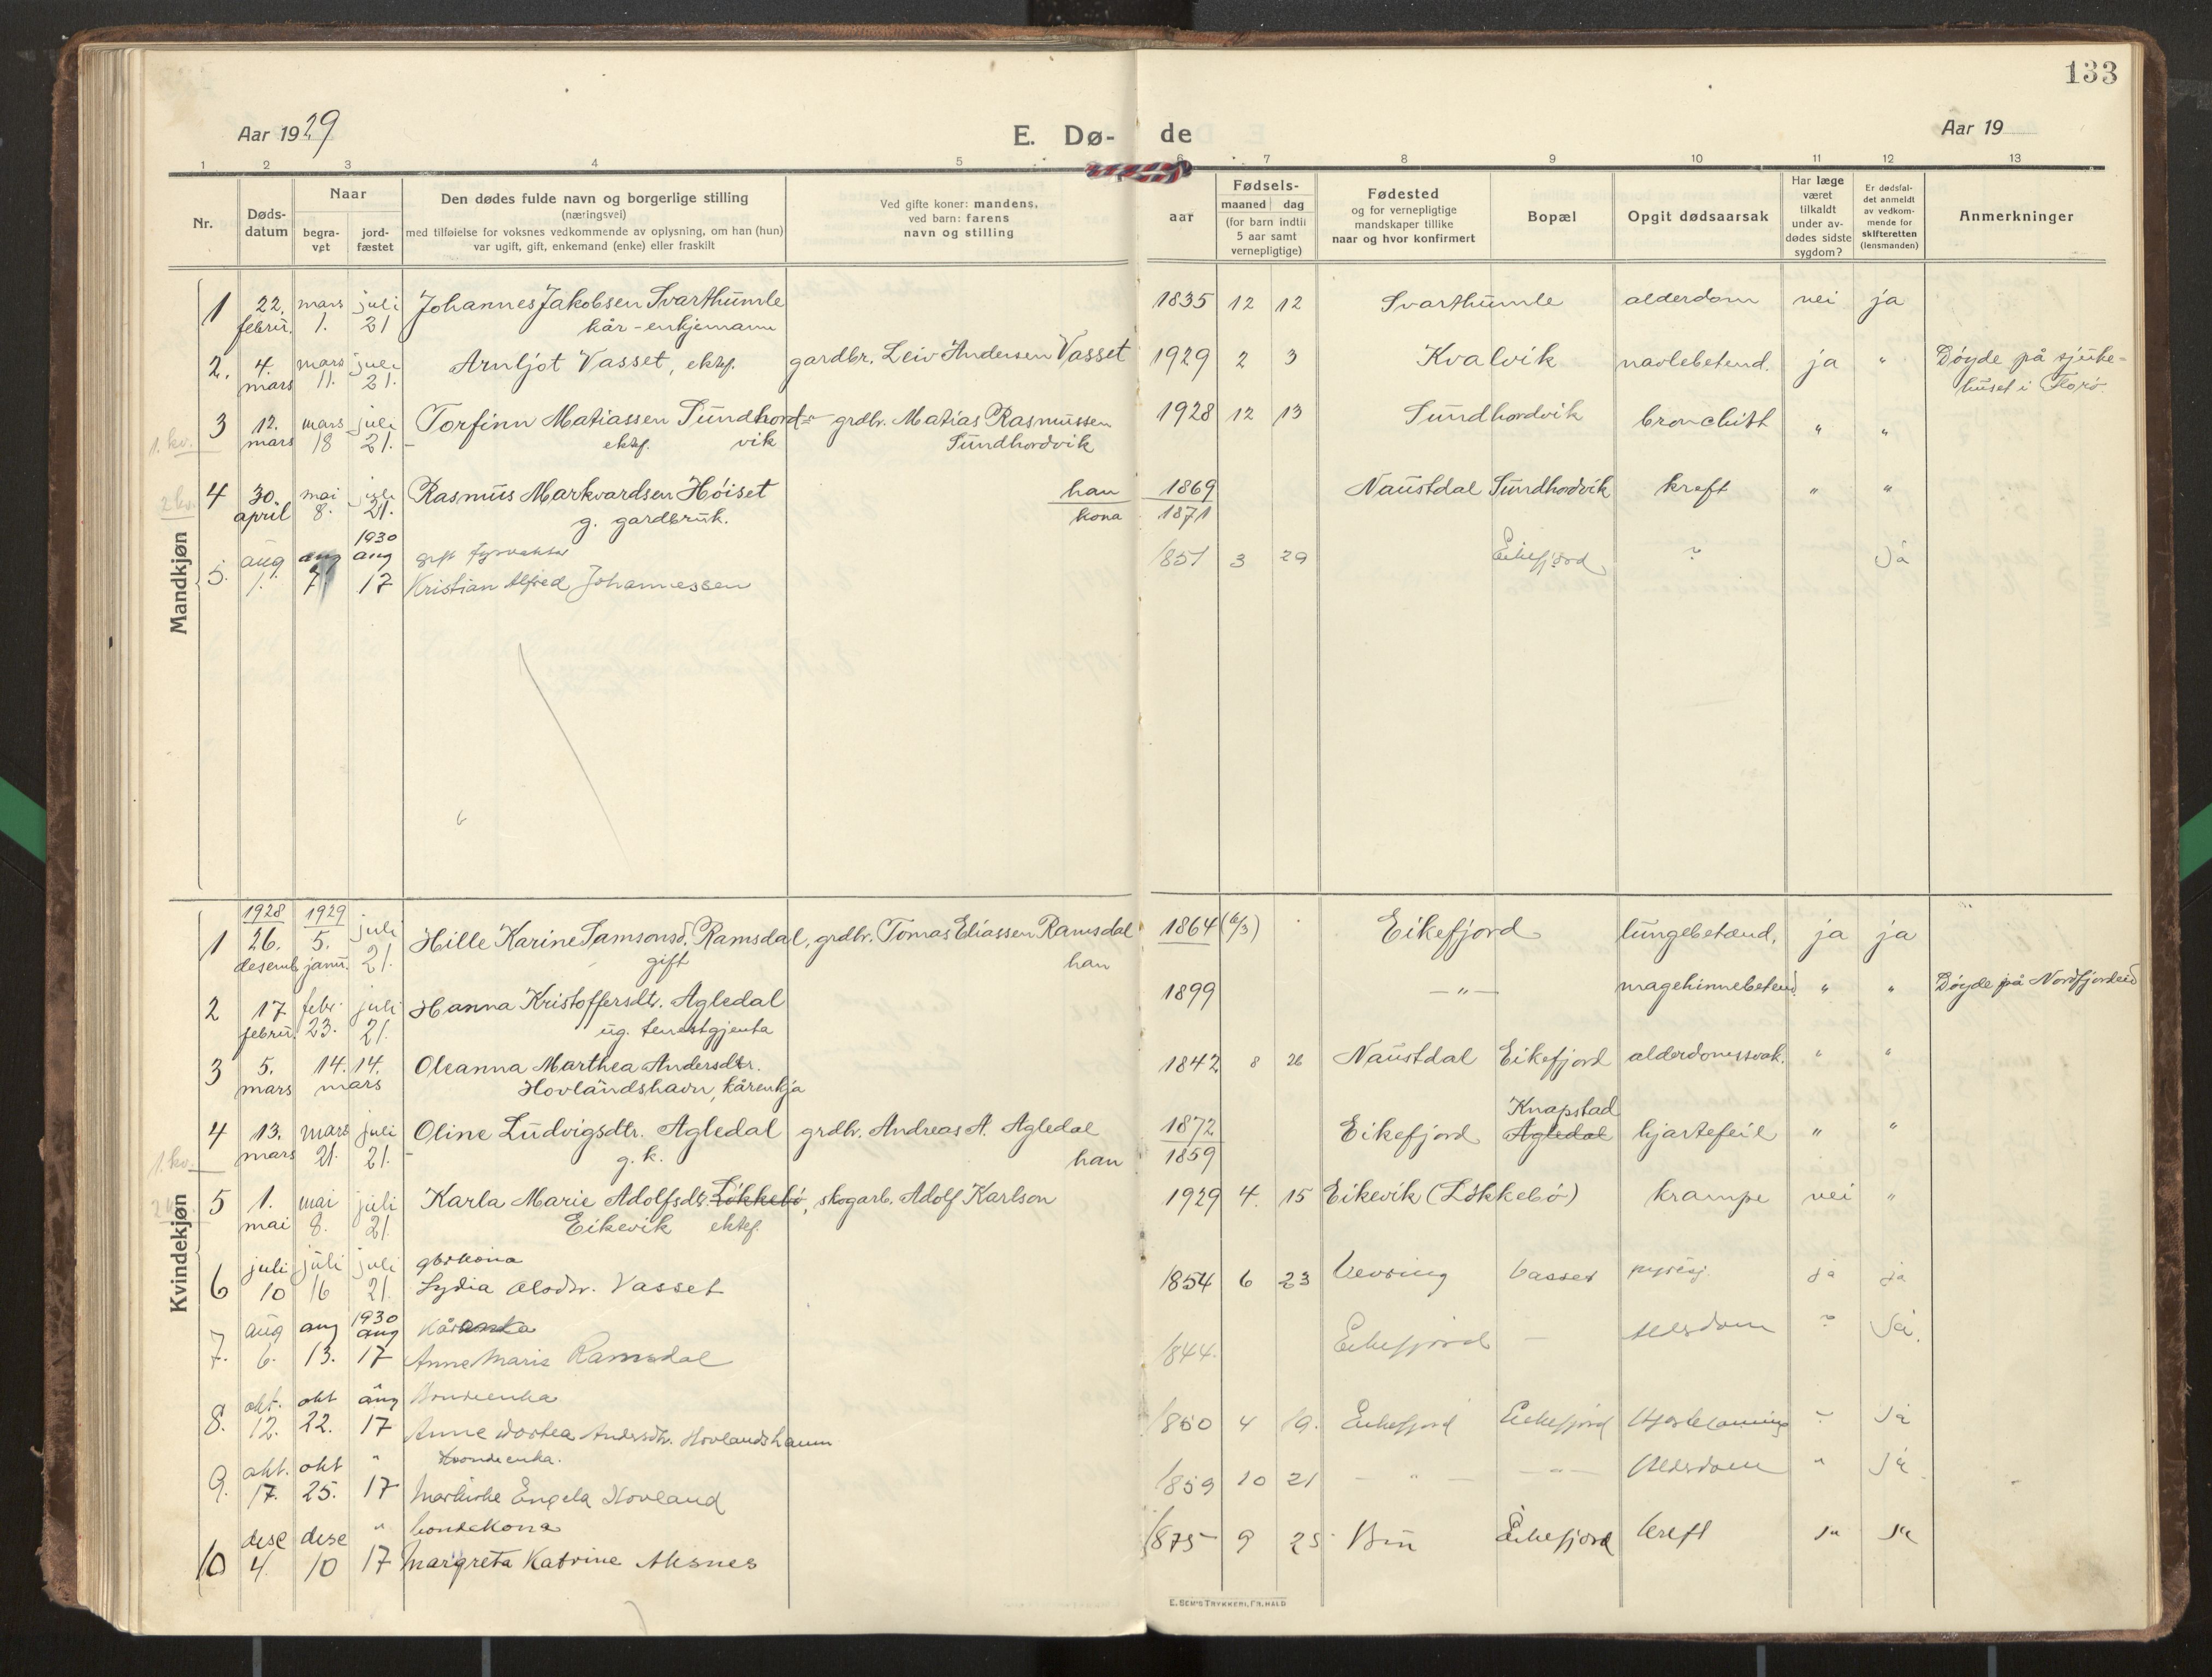 133
Aar 1929
E. Dø-de
Aar 19
1 2 3 4 5 6 7 8 9 10 11 12 13
Nr.
Døds-
datum
Naar
begra-
vet
jord-
fæstet
Den dødes fulde navn og borgerlige stilling
(næringsvei)
med tilføielse for voksnes vedkommende av oplysning, om han (hun)
var ugift, gift, enkemand (enke) eller fraskilt
Ved gifte koner: mandens,
ved barn: farens
navn og stilling
Fødsels-
aar
maaned dag
(for barn indtil
5 aar samt
vernepligtige)
Fødested
og for vernepligtige
mandskaper tillike
naar og hvor konfirmert
Bopæl
Opgit dødsaarsak
Har læge
været
tilkaldt
under av-
dødes sidste
sygdom?
Er dødsfal-
det anmeldt
av vedkom-
mende for
skifteretten
(lensmanden)
Anmerkninger
Mandkjøn
1 22. mars juli Johannes Jakobsen Svarthumle 1835 12 12 Svarthumle alderdom nei ja
febru. 1. 21 kår-enkjemann
2. 4. mars juli Arnljot Vasset, ektef. gardbr. Leiv Andersen Vasset 1929 2 3 Kvalvik navlebetend. ja " Döyde på sjuke-
mars 11. 21. huset i Florö
3 12. mars juli Torfinn Matiassen Sundhord- grdbr. Matias Rasmussen 1928 12 13 Sundhordvik bronchitt " "
1. kv. mars 18 21. ektef. vik Sundhordvik
2 kv. 4 30. mai juli Rasmus Markvardsen Höiset han 1869 Naustdal Sundhordvik kreft " "
april 8. 21. g. gardbruk. kona 1871
1930
5. aug aug aug gift fyrvakter 1851 3 29 Eikefjord ? Ja
1. 7 17 Kristian Alfred Johannessen
6
Kvindekjøn
1928 1929
1 26. 5. juli Hille Karine Samsonsd. Ramsdal, grdbr. Tomas Eliassen Ramsdal 1864 (6/3) Eikefjord lungebetend. ja ja
desemb. janu. 21. gift han
2 17 febr. juli Hanna Kristoffersdtr. Agledal 1899 -"- magehinnebetend. " " Döyde på Nordfjordeid
febru. 23. 21. ug. tenestgjenta
3 5. 14. 14. Oleanna Marthea Andersdtr. 1842 8 26 Naustdal Eikefjord alderdomssvak. " "
mars mars Hovlandshavn, kårenkja
Knapstad
4 13. mars juli Oline Ludvigsdtr. Agledal grdbr. Andreas A. Agledal 1872 Eikefjord Agledal hjartefeil " "
1. kv. mars 21. 21. g. k. han 1859
5 1. mai juli Karla Marie Adolfsdtr. Lökkebö, skogarb. Adolf Karlson 1929 4. 15 Eikevik (Lökkebö) krampe nei "
mai 8. 21. Eikevik ektef.
6 juli juli juli gbrkona
10 16 21. Lydia Olsdtr. Vasset 1854 6 23 Vevring Vasset ja ja
1930
7. aug aug aug Kårenka
6. 13. 17 Anne Marie Ramsdal 1844. Eikefjord — Aldsdom ? Ja.
8. okt. okt aug Bondeenka
12. 22. 17 Anne Dortea Andersdtr. Hovlandshamn 1850 4 19. Eikefjord Eikefjord Hjertelamning " Ja
9. okt. okt " Bondeenka.
17. 25. 17 Engela Hovland 1859 10 21 - " - - " - Aldsdom " Ja
10 dese dese " bondekona
4. 10 17 Margreta Katrine Aksnes 1875 9 25 Bru Eikefjord kreft Ja Ja
E. SEM'S TRYKKERI, FR.HALD